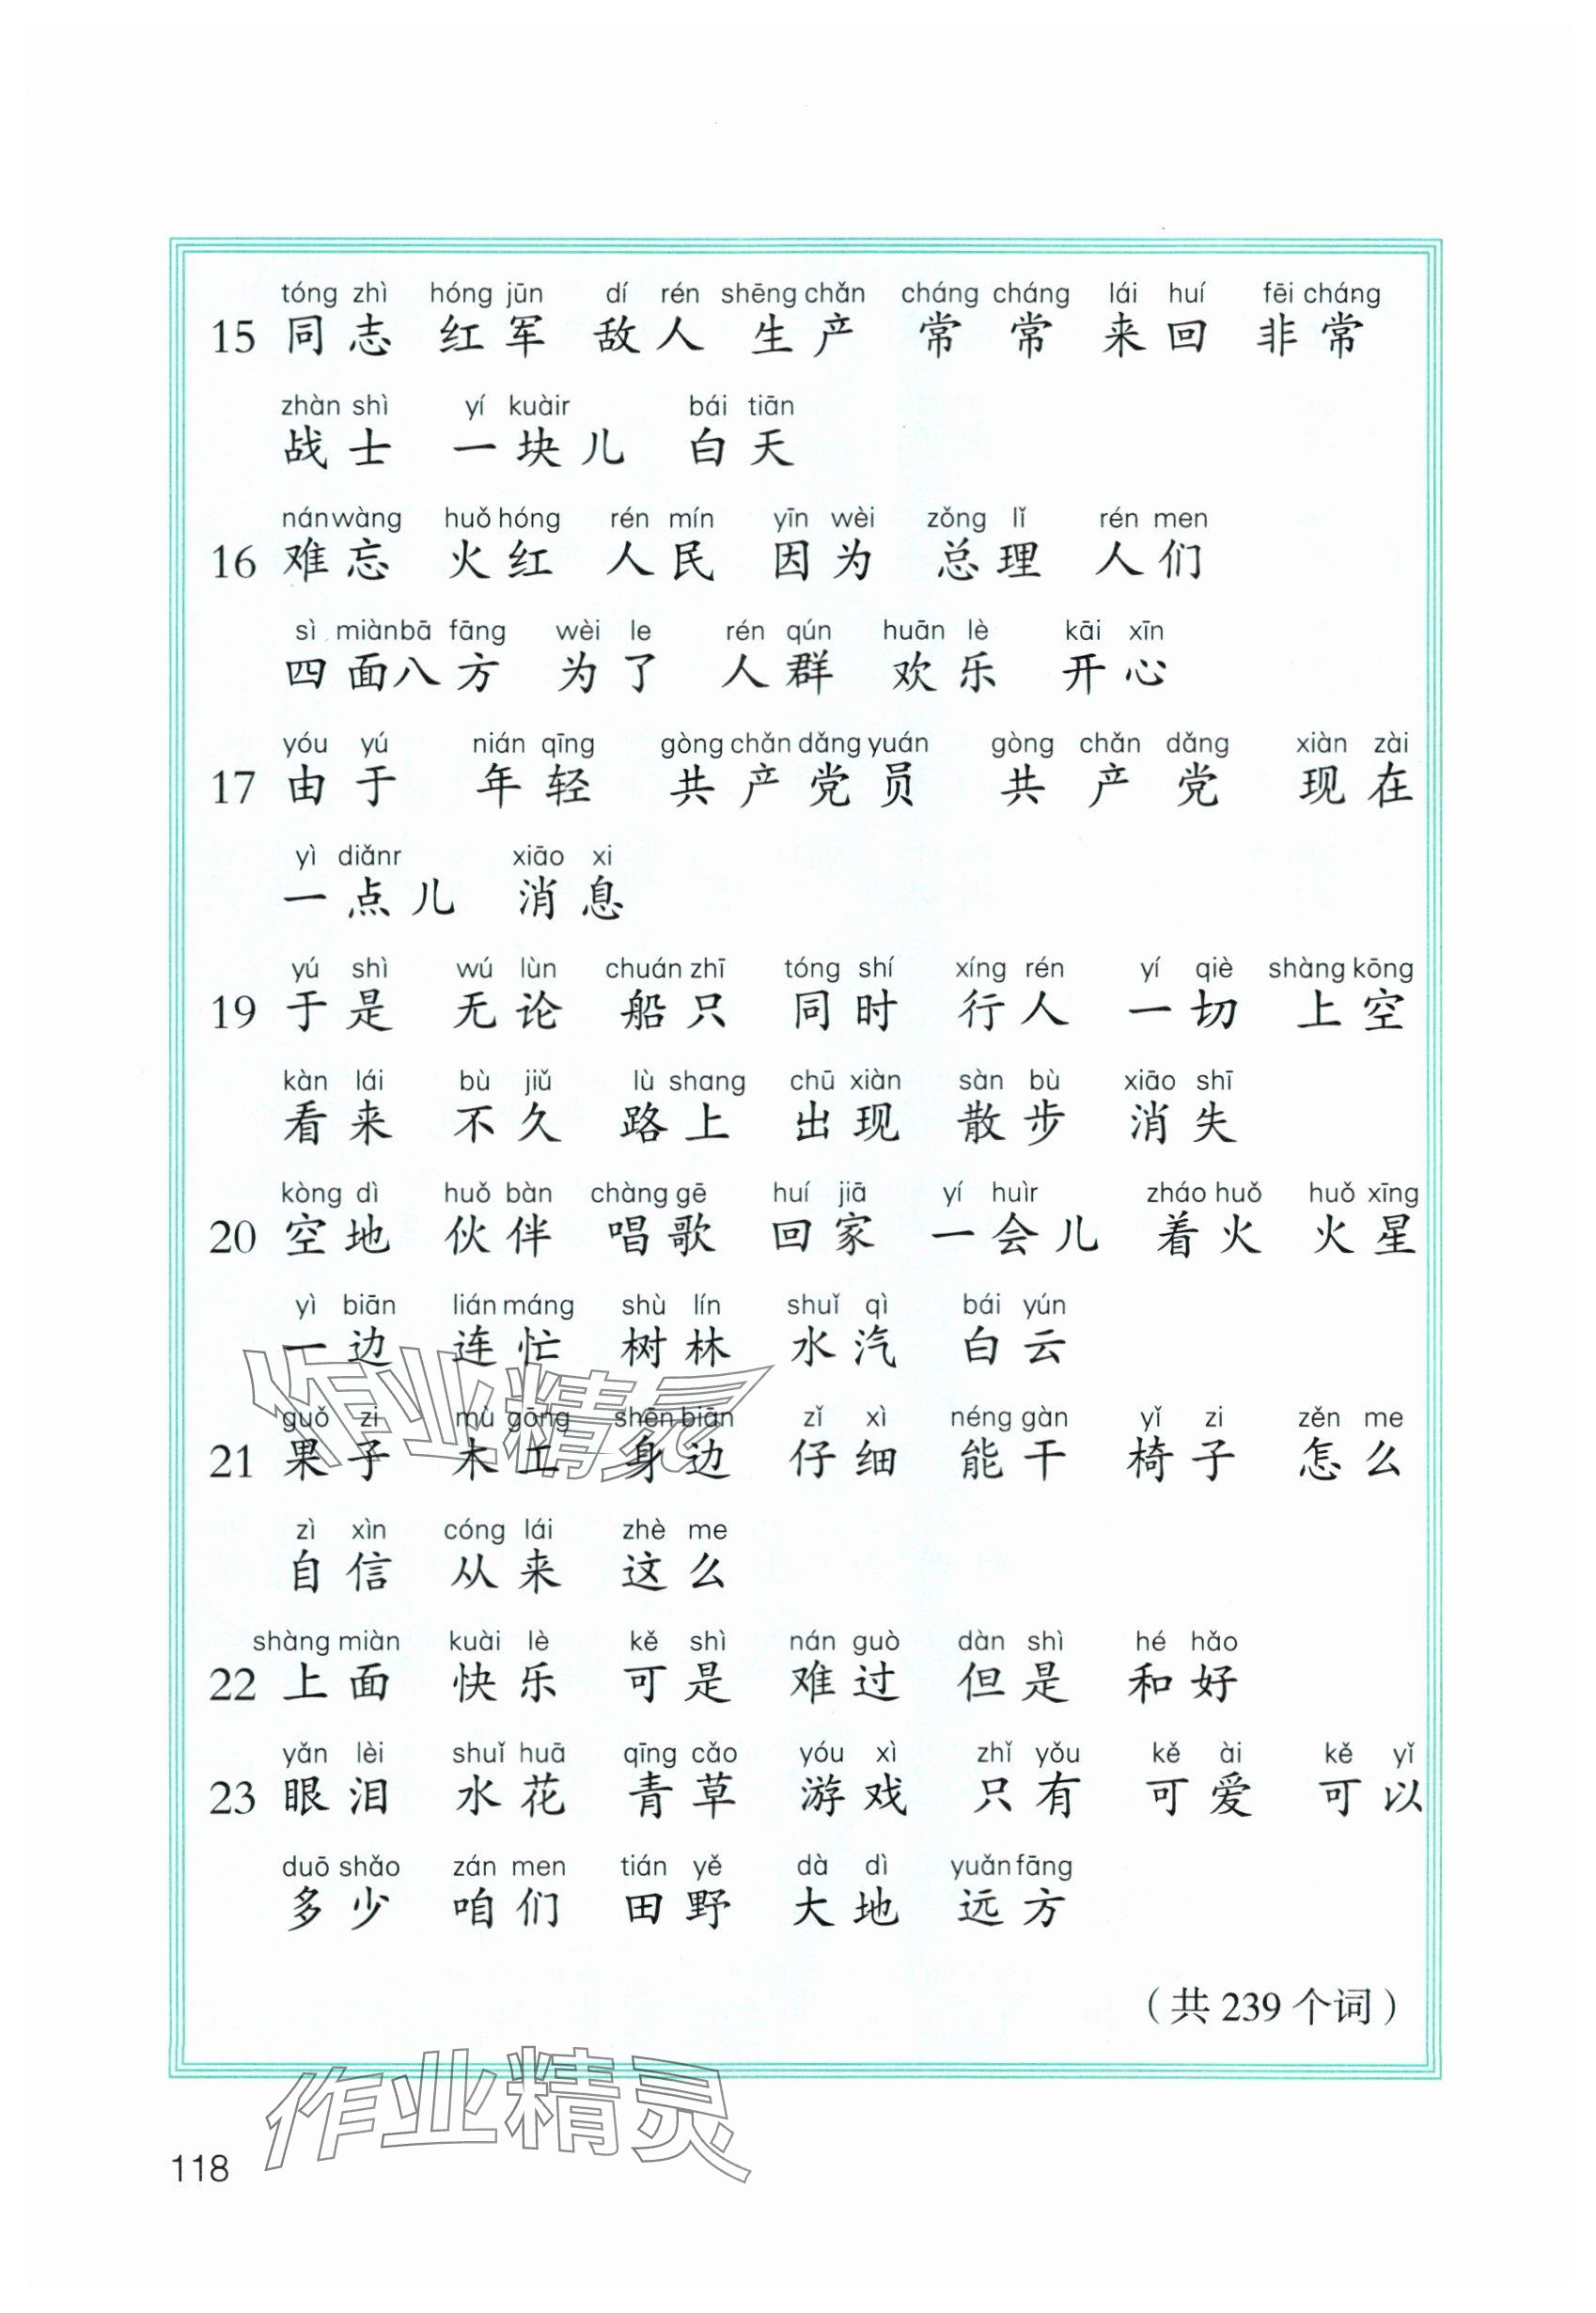 tóng zhì hóng jūn dí rén shēng chǎn cháng cháng lái huí fēi cháng
15 同志 红军 敌人 生产 常常 来回 非常
zhàn shì yí kuàir bái tiān
战士 一块儿 白天
nán wàng huǒ hóng rén mín yīn wèi zǒng lǐ rén men
16 难忘 火红 人民 因为 总理 人们
sì miàn bā fāng wèi le rén qún huān lè kāi xīn
四面八方 为了 人群 欢乐 开心
yóu yú nián qīng gòng chǎn dǎng yuán gòng chǎn dǎng xiàn zài
17 由于 年轻 共产党员 共产党 现在
yì diǎnr xiāo xi
一点儿 消息
yú shì wú lùn chuán zhī tóng shí xíng rén yí qiè shàng kōng
19 于是 无论 船只 同时 行人 一切 上空
kàn lái bù jiǔ lù shang chū xiàn sàn bù xiāo shī
看来 不久 路上 出现 散步 消失
kòng dì huǒ bàn chàng gē huí jiā yí huìr zháo huǒ huǒ xīng
20 空地 伙伴 唱歌 回家 一会儿 着火 火星
yì biān lián máng shù lín shuǐ qì bái yún
一边 连忙 树林 水汽 白云
guǒ zi mù gōng shēn biān zǐ xì néng gàn yǐ zi zěn me
21 果子 木工 身边 仔细 能干 椅子 怎么
zì xìn cóng lái zhè me
自信 从来 这么
shàng miàn kuài lè kě shì nán guò dàn shì hé hǎo
22 上面 快乐 可是 难过 但是 和好
yǎn lèi shuǐ huā qīng cǎo yóu xì zhǐ yǒu kě ài kě yǐ
23 眼泪 水花 青草 游戏 只有 可爱 可以
duō shǎo zán men tián yě dà dì yuǎn fāng
多少 咱们 田野 大地 远方
（共 239 个词）
118
作业精灵
作业精灵